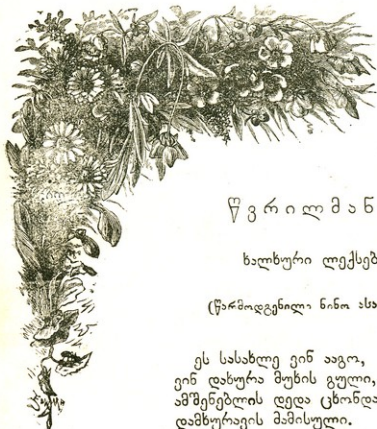 წვრილმან
ხალხური ლექსებ
(წარმოდგენილი ნინო ასა
ეს სასახლე ვინ ააგო,
ვინ დახურა მუხის გული,
ამშენებლის დედა ცხონდა
დამხურავის მამისული.